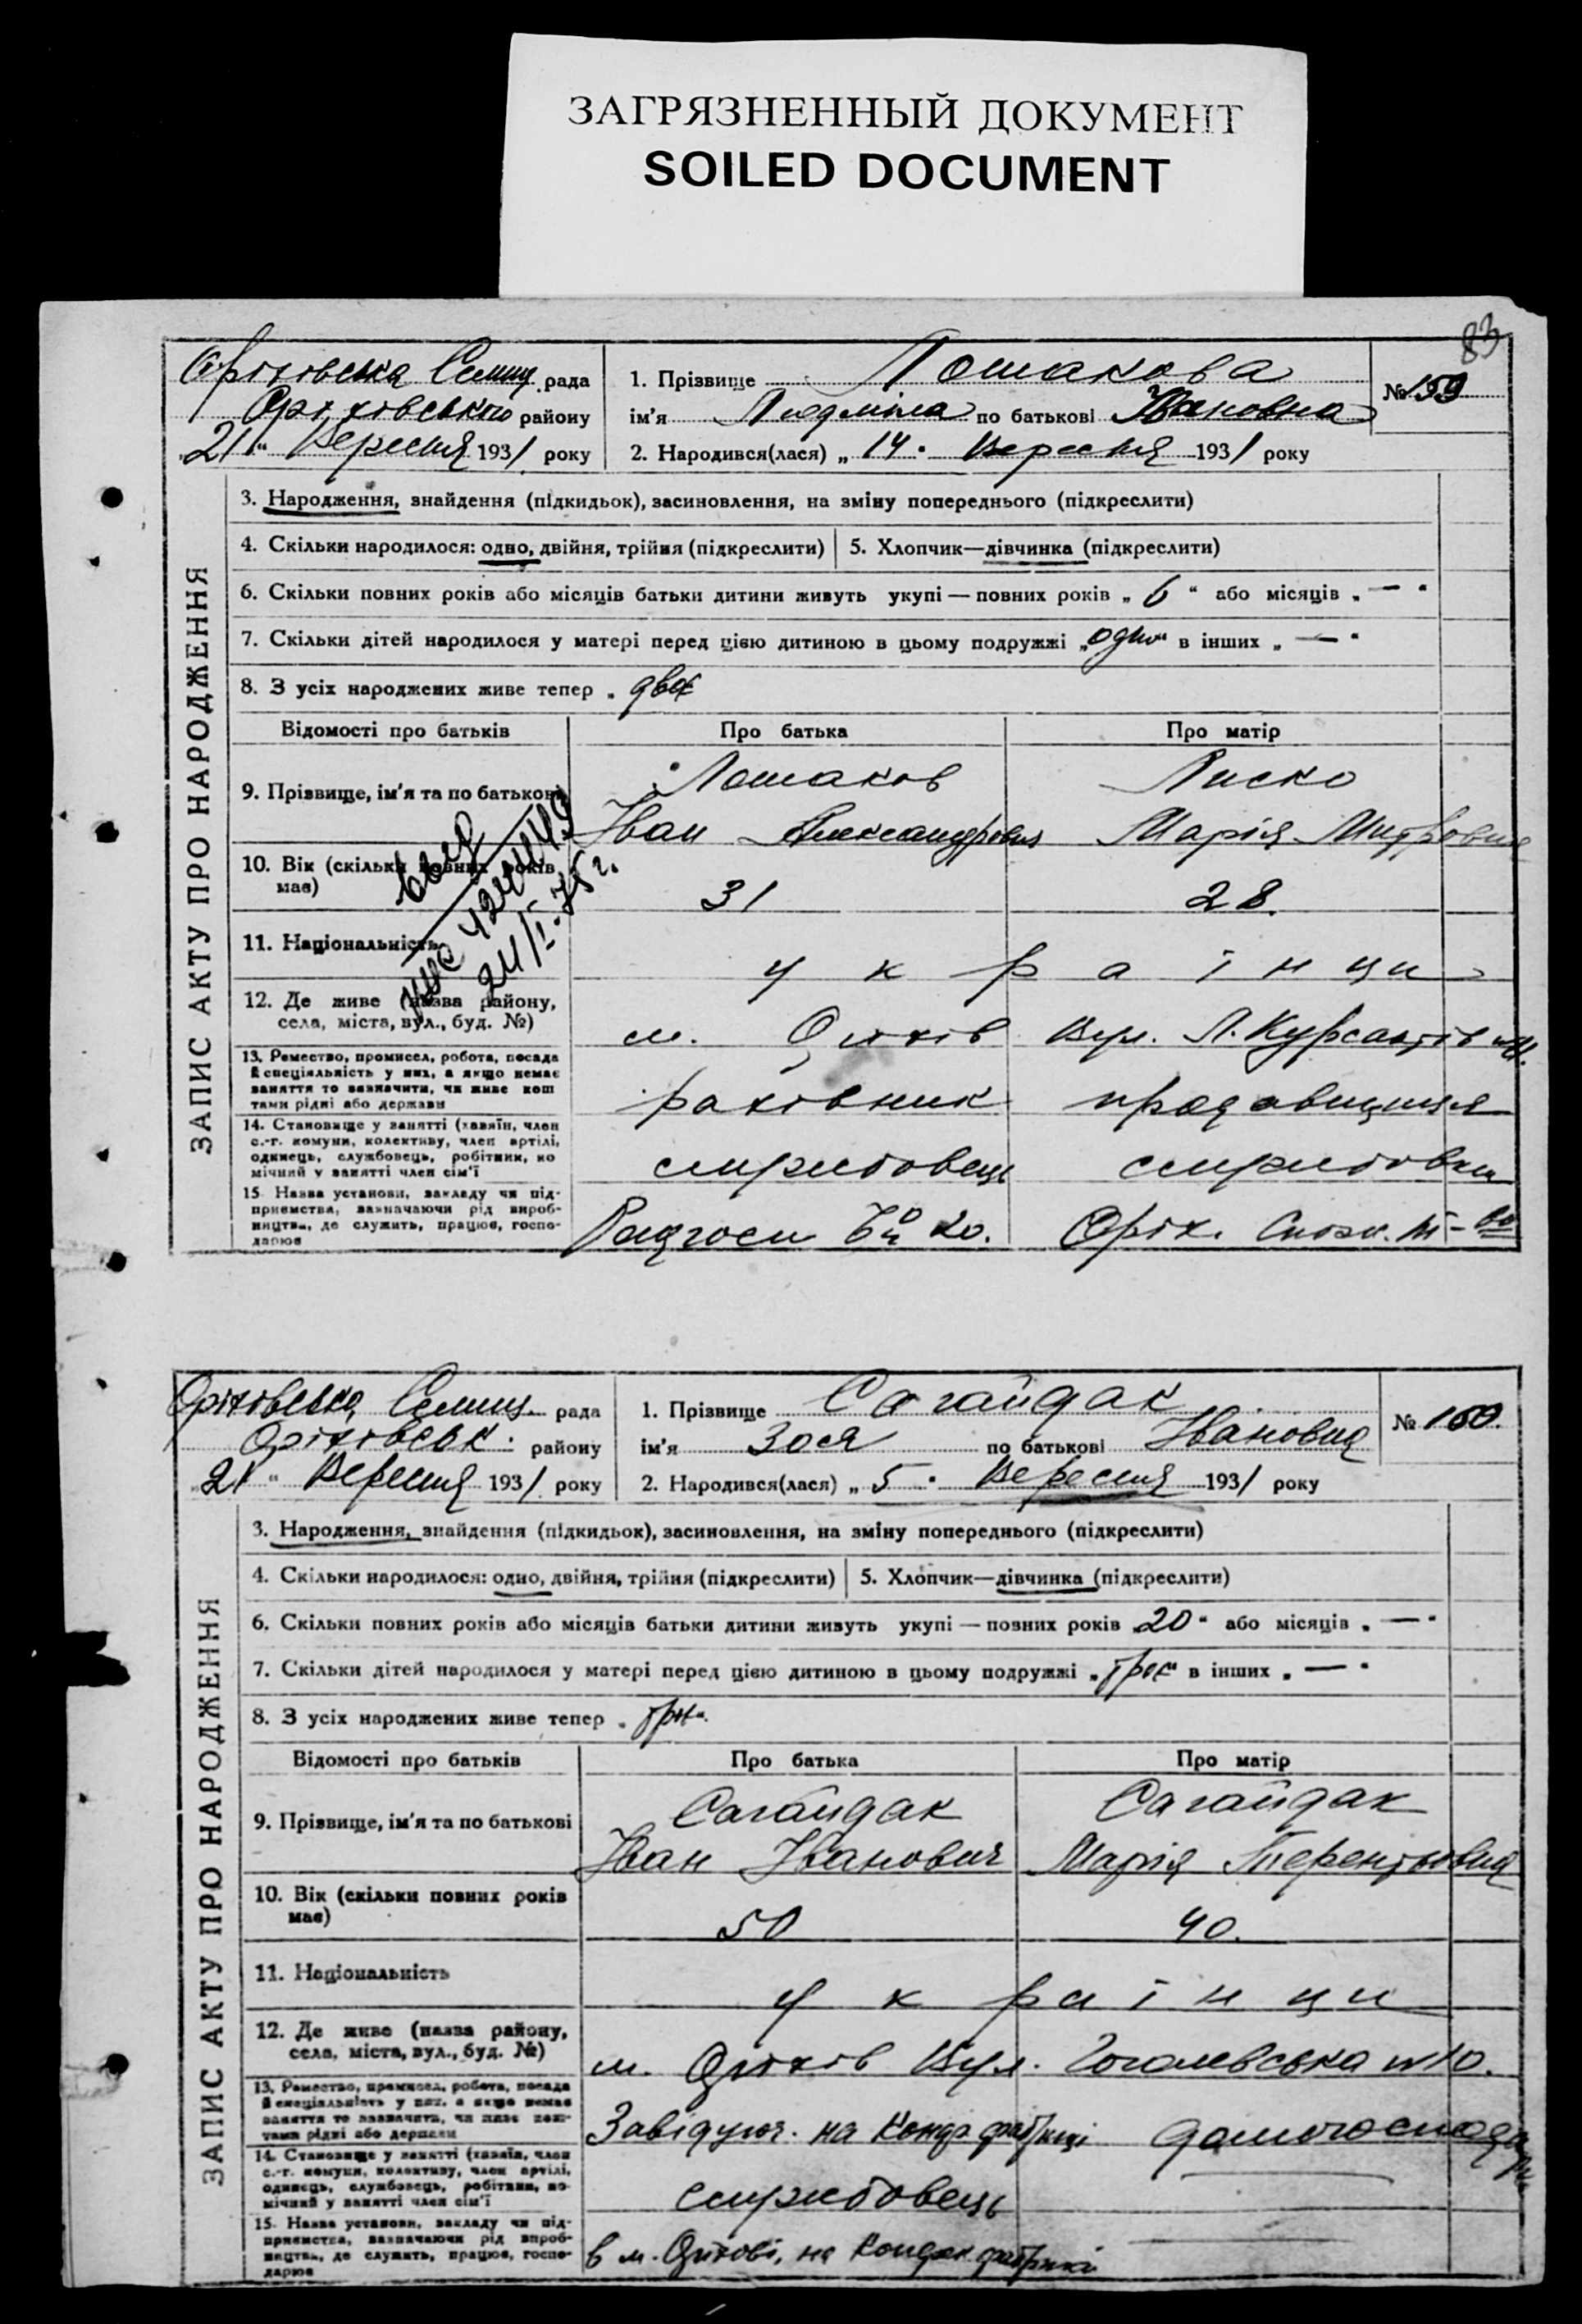 ЗАГРЯЗНЕННЫЙ ДОКУМЕНТ
SOILED DOCUMENT
83
Оріхівська Селищ. рада
Оріхівського району
„21“ Вересня 1931 року
1. Прізвище Лошакова
ім'я Людміла по батькові Івановна
2. Народився(лася) „14“ Вересня 1931 року
№ 159
ЗАПИС АКТУ ПРО НАРОДЖЕННЯ
3. Народження, знайдення (підкидьок), засиновлення, на зміну попереднього (підкреслити)
4. Скільки народилося: одно, двійня, трійня (підкреслити) 5. Хлопчик—дівчинка (підкреслити)
6. Скільки повних років або місяців батьки дитини живуть укупі — повних років „6“ або місяців „—“
7. Скільки дітей народилося у матері перед цією дитиною в цьому подружжі „одно“ в інших „—“
8. З усіх народжених живе тепер „двоє
Відомості про батьків Про батька Про матір
9. Прізвище, ім'я та по батькові
Лошаков Лиско
Іван Александрович Марія Митровна
10. Вік (скільки повних років має)
31 28.
24/I.75 г.
11. Національність
українци
12. Де живе (назва району, села, міста, вул., буд. №)
м. Оріхів Вул. Л. Курсантів
13. Ремество, промисел, робота, посада й спеціяльність у них, а якщо немає заняття то зазначити, чи живе коштами рідні або держави
раховник продавщиця
14. Становище у занятті (хазяїн, член с.-г. комуни, колективу, член артілі, одинець, службовець, робітник, помічний у занятті член сім'ї
службовець службовка
15. Назва установи, закладу чи підприємства, зазначаючи рід виробництва, де служить, працює, господарює
Радгосп № 20. Оріх. Спож. т-во
Оріхівська Селищ. рада
Оріхівськ. району
„21“ Вересня 1931 року
1. Прізвище Сагайдак
ім'я Зося по батькові Івановна
2. Народився(лася) „5“ Вересня 1931 року
№ 160.
ЗАПИС АКТУ ПРО НАРОДЖЕННЯ
3. Народження, знайдення (підкидьок), засиновлення, на зміну попереднього (підкреслити)
4. Скільки народилося: одно, двійня, трійня (підкреслити) 5. Хлопчик—дівчинка (підкреслити)
6. Скільки повних років або місяців батьки дитини живуть укупі — повних років „20“ або місяців „—“
7. Скільки дітей народилося у матері перед цією дитиною в цьому подружжі „троє“ в інших „—“
8. З усіх народжених живе тепер „
Відомості про батьків Про батька Про матір
9. Прізвище, ім'я та по батькові
Сагайдак Сагайдак
Іван Іванович Марія Терентьовна
10. Вік (скільки повних років має)
50 40.
11. Національність
українци
12. Де живе (назва району, села, міста, вул., буд. №)
м. Оріхів Вул. Гоголевська №10.
13. Ремество, промисел, робота, посада й спеціяльність у них, а якщо немає заняття то зазначити, чи живе коштами рідні або держави
Завідуюч. на Конд. фабриці домогосподарка
14. Становище у занятті (хазяїн, член с.-г. комуни, колективу, член артілі, одинець, службовець, робітник, помічний у занятті член сім'ї
службовець
15. Назва установи, закладу чи підприємства, зазначаючи рід виробництва, де служить, працює, господарює
в м. Оріхові, на Кондак фабрикі